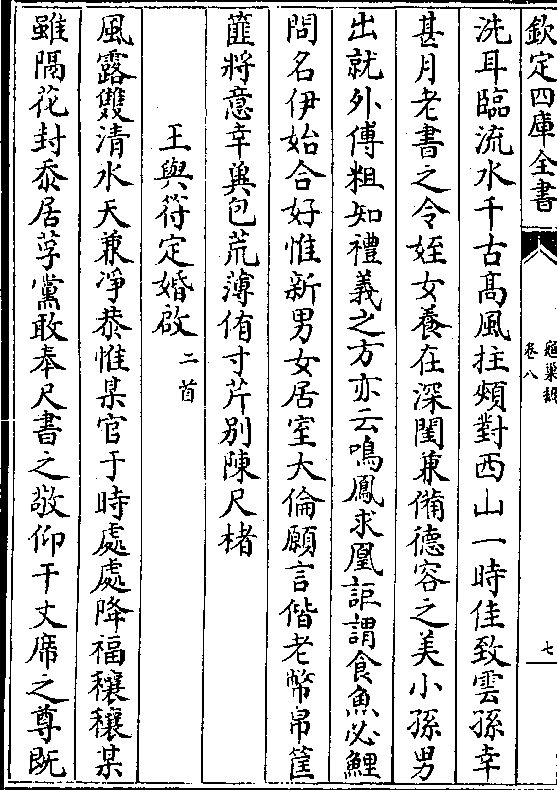 欽定四庫全書
龜巢稿
卷八
七
洗耳臨流水千古髙風拄頰對西山一時佳致雲孫幸
甚月老書之令姪女養在深閨兼備德容之美小孫男
出就外傅粗知禮義之方亦云鳴鳳求凰詎謂食魚必鯉
問名伊始合好惟新男女居室大倫願言偕老幣帛筐
篚將意幸兾包荒薄侑寸芹别陳尺楮
王與符定婚啟二首
風露雙清水天兼凈恭惟某官于時處處降福穰穰某
雖隔花封忝居莩黨敢奉尺書之敬仰干丈席之尊既